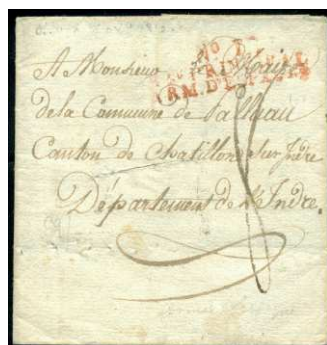 No D
PRIN
ARM. D'E
A Monsieur Maire
de la Commune de Palluau
Canton de Chatillon Sur Indre
Département de L'Indre.